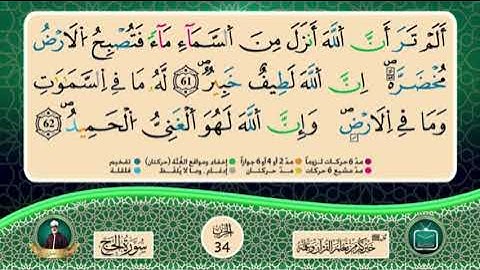 أَلَمْ تَرَ أَنَّ اَللَّهَ أَنزَلَ مِنَ اَلسَّمَآءِ مَآءٗ فَتُصْبِحُ اُلَارْضُ
مُخْضَرَّةًۖ اِنَّ اَللَّهَ لَطِيفٌ خَبِيرٞۖ 61 لَّهُۥ مَا فِے اِلسَّمَٰوَٰتِ
وَمَا فِے اِلَارْضِۖ وَإِنَّ اَللَّهَ لَهُوَ اَلْغَنِيُّ اُلْحَمِيدُۖ 62
مدّ 6 حركات لزوماً مدّ 2 أو 4 أو 6 جوازاً إخفاء ومواقع الغُنَّة (حركتان) تفخيم
مدّ مشبع 6 حركات مدّ حركتان إدغام، وما لا يُلفَظ قلقلة
سورة الحج
الحزب
34
خيركم من تعلم القرآن وعلمه